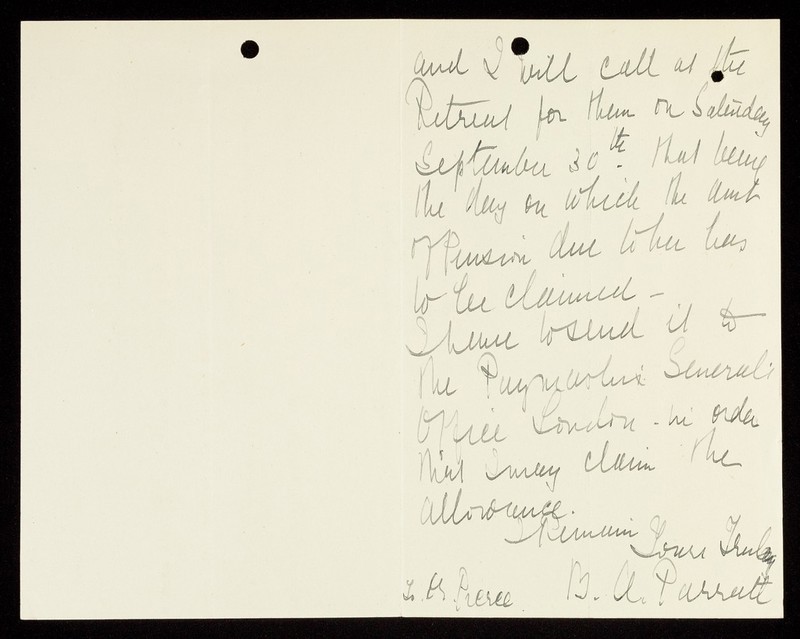 and I will call at the
Retreat for them on Saturday
September 30th. that being
the day on which the amt
of Pension due to her has
to be claimed –
I have to send it to
the Paymaster General's
Office London - in order
that I may claim the
allowance.
I Remain
Yours Truly
To Dr. Pierce B. A. Parratt